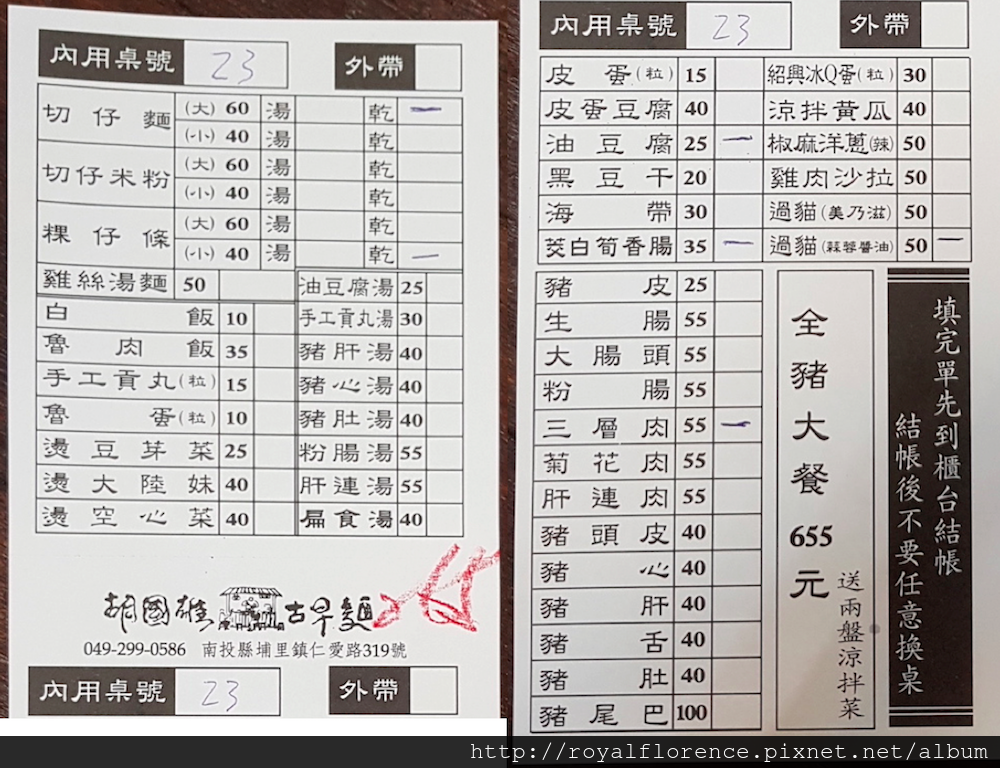 內用桌號 23 外帶
切仔麵 (大) 60 湯 乾 一
(小) 40 湯 乾
切仔米粉 (大) 60 湯 乾
(小) 40 湯 乾
粿仔條 (大) 60 湯 乾
(小) 40 湯 乾 一
雞絲湯麵 50 油豆腐湯 25
白飯 10 手工貢丸湯 30
魯肉飯 35 豬肝湯 40
手工貢丸(粒) 15 豬心湯 40
魯蛋(粒) 10 豬肚湯 40
燙豆芽菜 25 粉腸湯 55
燙大陸妹 40 肝連湯 55
燙空心菜 40 扁食湯 40
胡國雄古早麵
265
049-299-0586 南投縣埔里鎮仁愛路319號
內用桌號 23 外帶
內用桌號 23 外帶
皮蛋(粒) 15 紹興冰Q蛋(粒) 30
皮蛋豆腐 40 涼拌黃瓜 40
油豆腐 25 一 椒麻洋蔥(辣) 50
黑豆干 20 雞肉沙拉 50
海帶 30 過貓(美乃滋) 50
茭白筍香腸 35 一 過貓(蒜蓉醬油) 50 一
豬皮 25
生腸 55
大腸頭 55
粉腸 55
三層肉 55 一
菊花肉 55
肝連肉 55
豬頭皮 40
豬心 40
豬肝 40
豬舌 40
豬肚 40
豬尾巴 100
全豬大餐655元
送兩盤涼拌菜
填完單先到櫃台結帳
結帳後不要任意換桌
http://royalflorence.pixnet.net/album